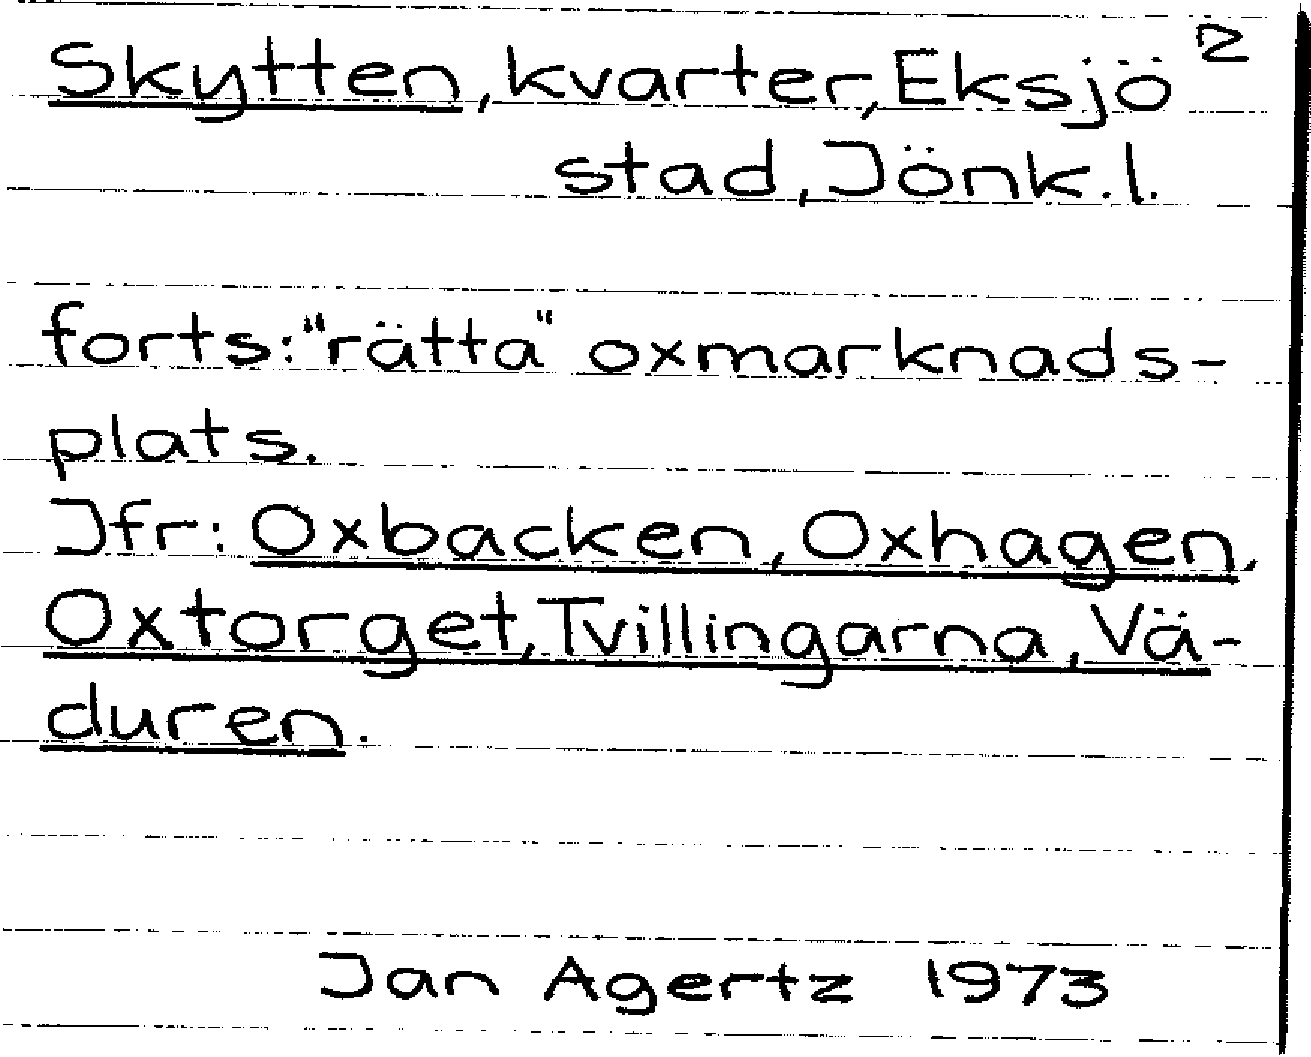 Skytten, kvarter, Eksjö 2
stad, Jönk.l.
forts: "rätta" oxmarknads-
plats.
Jfr: Oxbacken, Oxhagen,
Oxtorget, Tvillingarna, Vä-
duren.
Jan Agertz 1973